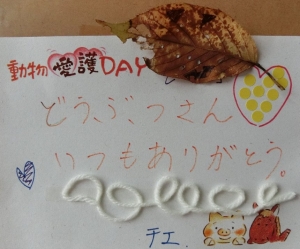 動物愛護DAY
どうぶつさん
いつもありがとう。
チエ